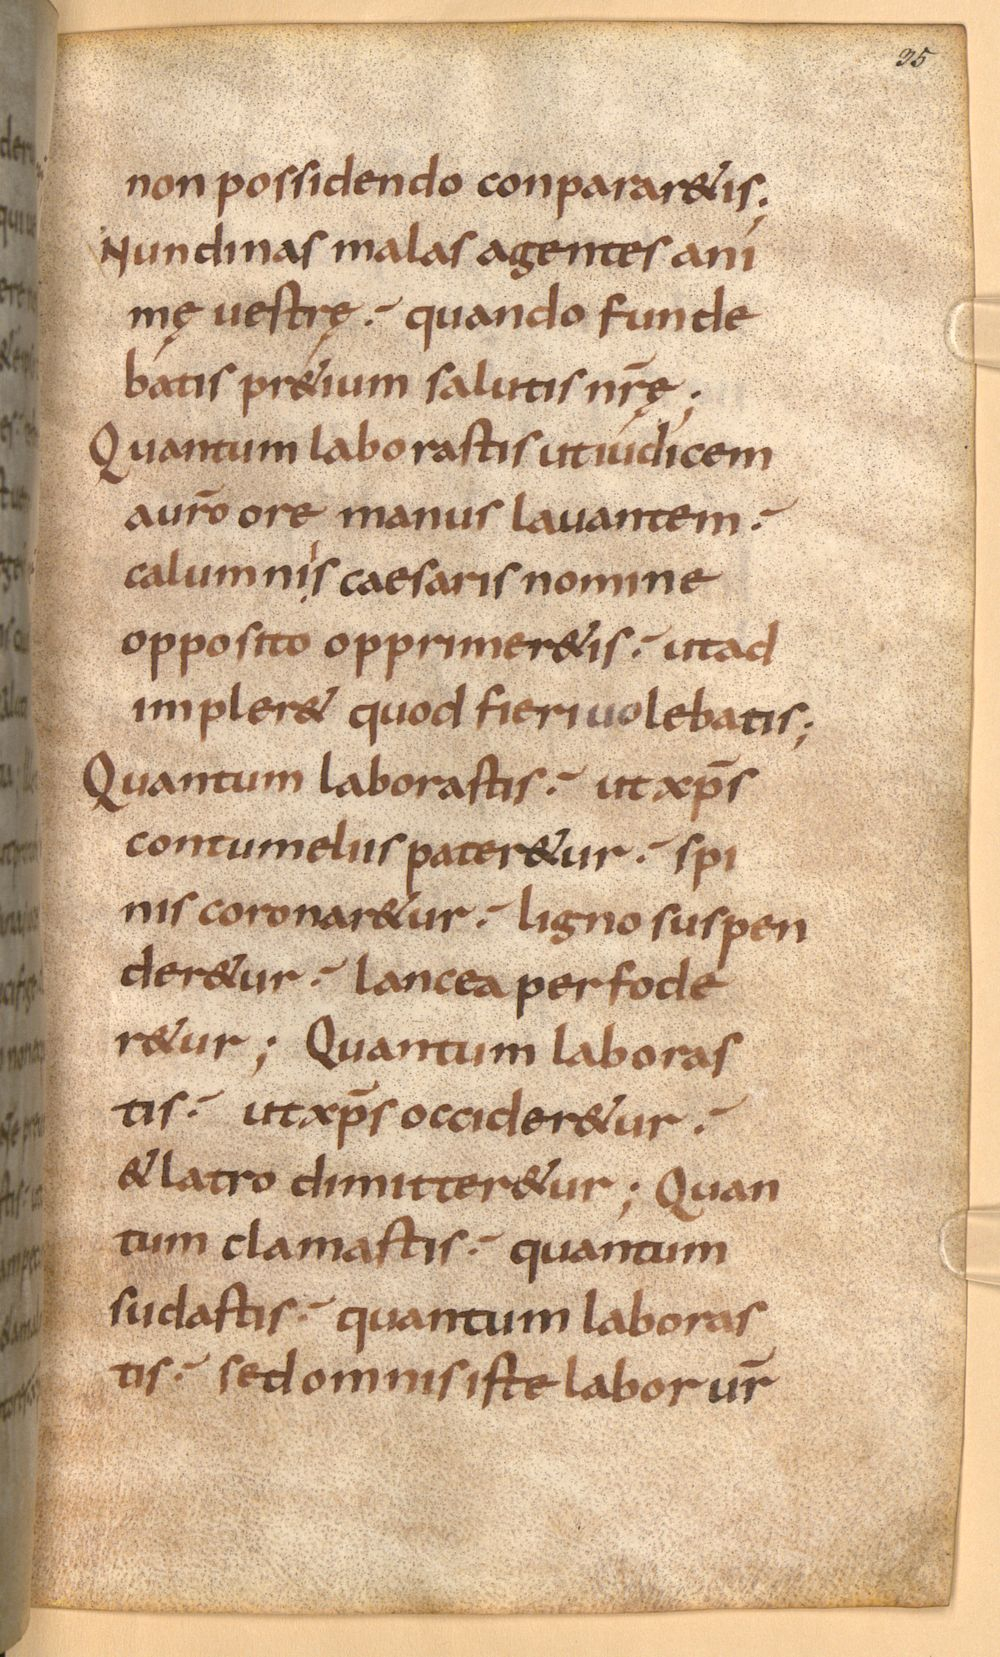 35
non possidendo conparar&is;
Nundinas malas agentes ani
mę vestrę. quando funde
batis pr&ium salutis nr̄ę;
Quantum laborastis ut iudicem
aur̄o ore manus lavantem.
calumnis caesaris nomine
opposito opprimer&is. ut ad
impler& quod fieri uolebatis;
Quantum laborastis. ut xp̄s
contumeliis pater&ur. spi
nis coronar&ur. ligno suspen
der&ur. lancea perfode
r&ur; Quantum laboras
tis. ut xp̄s occider&ur.
& latro dimitter&ur; Quan
tum clamastis. quantum
sudastis. quantum laboras
tis. sed omnis iste labor ur̄